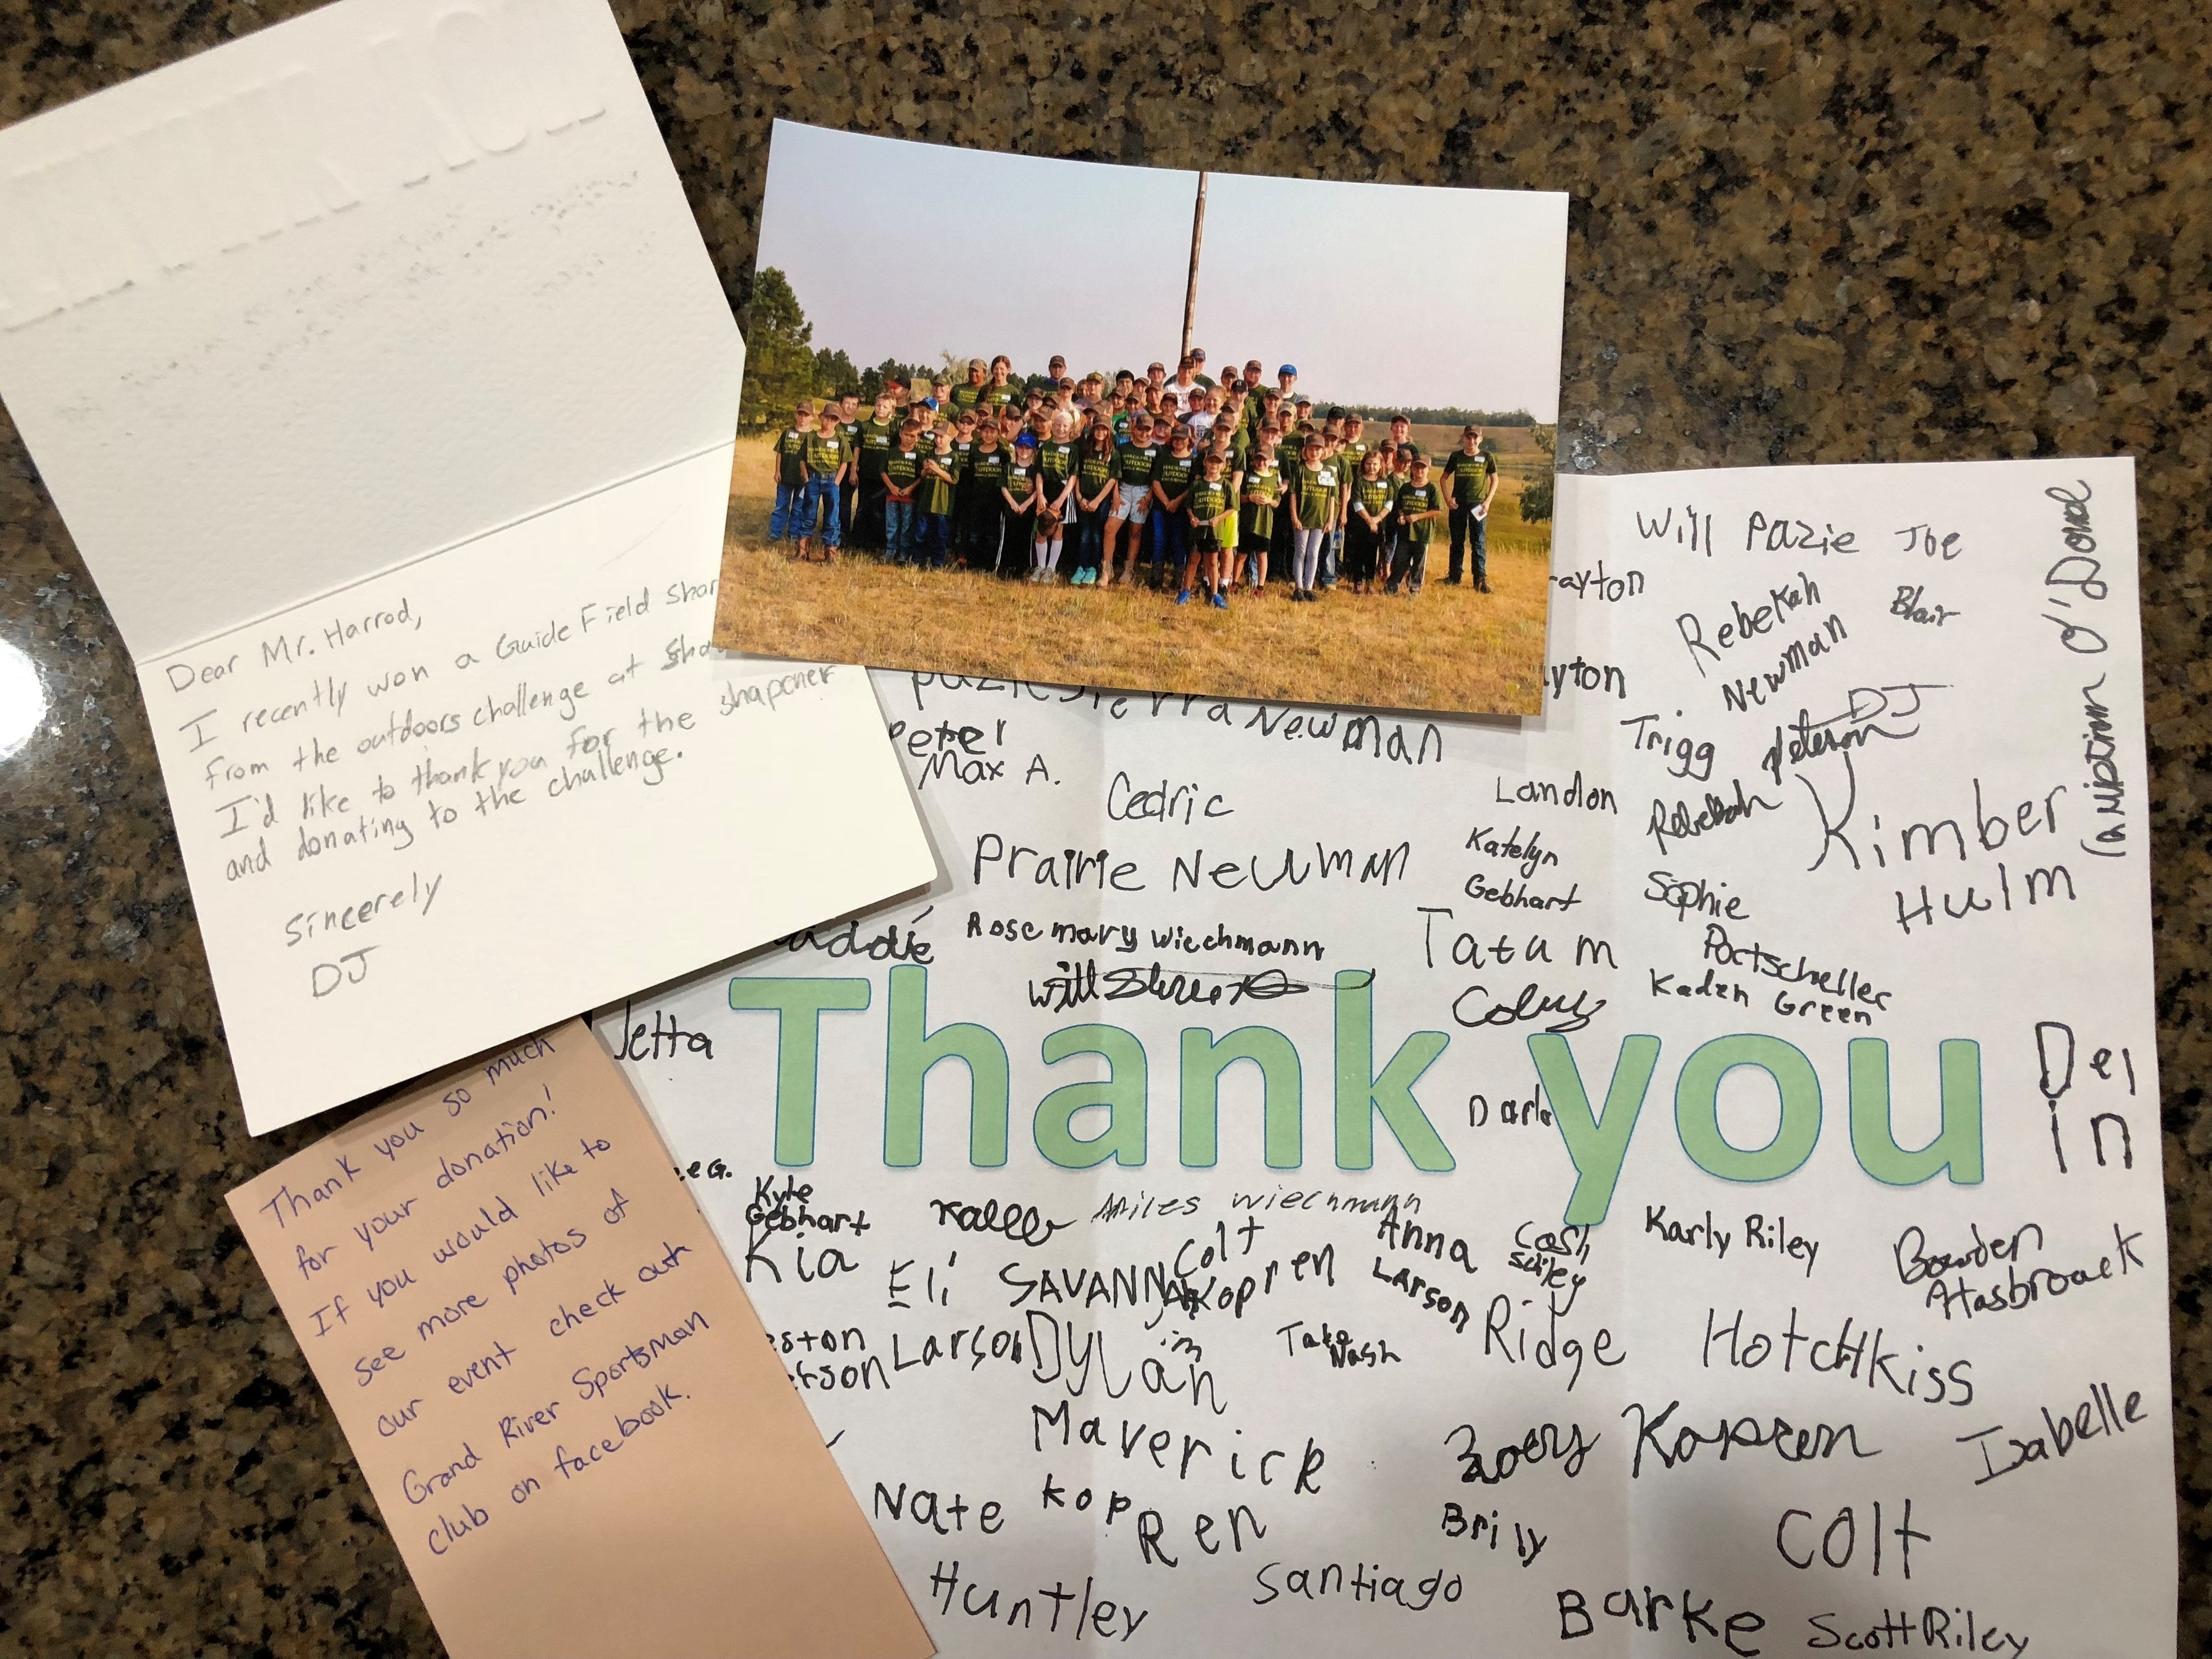 Dear Mr. Harrod,
I recently won a Guide Field
from the outdoors challenge at
I'd like to thank you for the shapener
and donating to the challenge.
Sincerely
DJ
Thank you so much
for your donation!
If you would like to
see more photos of
our event check out
Grand River Sportsman
club on facebook.
OUTDOOR
Will Pazie Joe
Blair
Rebekah
Newman
DJ
Peterson
Trigg
Sierra Newman
Peter
Max A.
Cedric
Landon
Rebekah
Kimber
Hulm
Prairie Newman
Katelyn
Gebhart
Sophie
Portscheller
Rosemary Wiechmann
Tatum
Kaden Green
Will
Jetta
Thank you
Del
in
Kyle
Gebhart
Miles Wiechmann
Kia
Eli
Larson
SAVANNAH
Colt
Kopren
Anna
Larson
Cash
Karly Riley
Bowden
Dylan
Nash
Ridge Hotchkiss
Maverick
Kopren
Zoey Kopren
Isabelle
Nate
Brily
Colt
Huntley
Santiago
Barke
Scott Riley